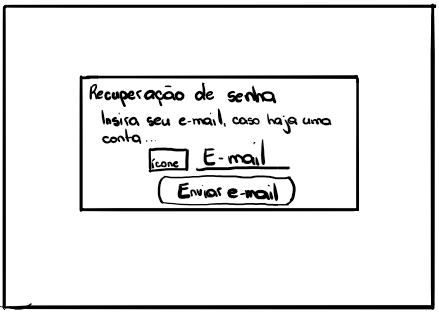 Recuperação de senha
Insira seu e-mail, caso haja uma
conta...
ícone E-mail
Enviar e-mail